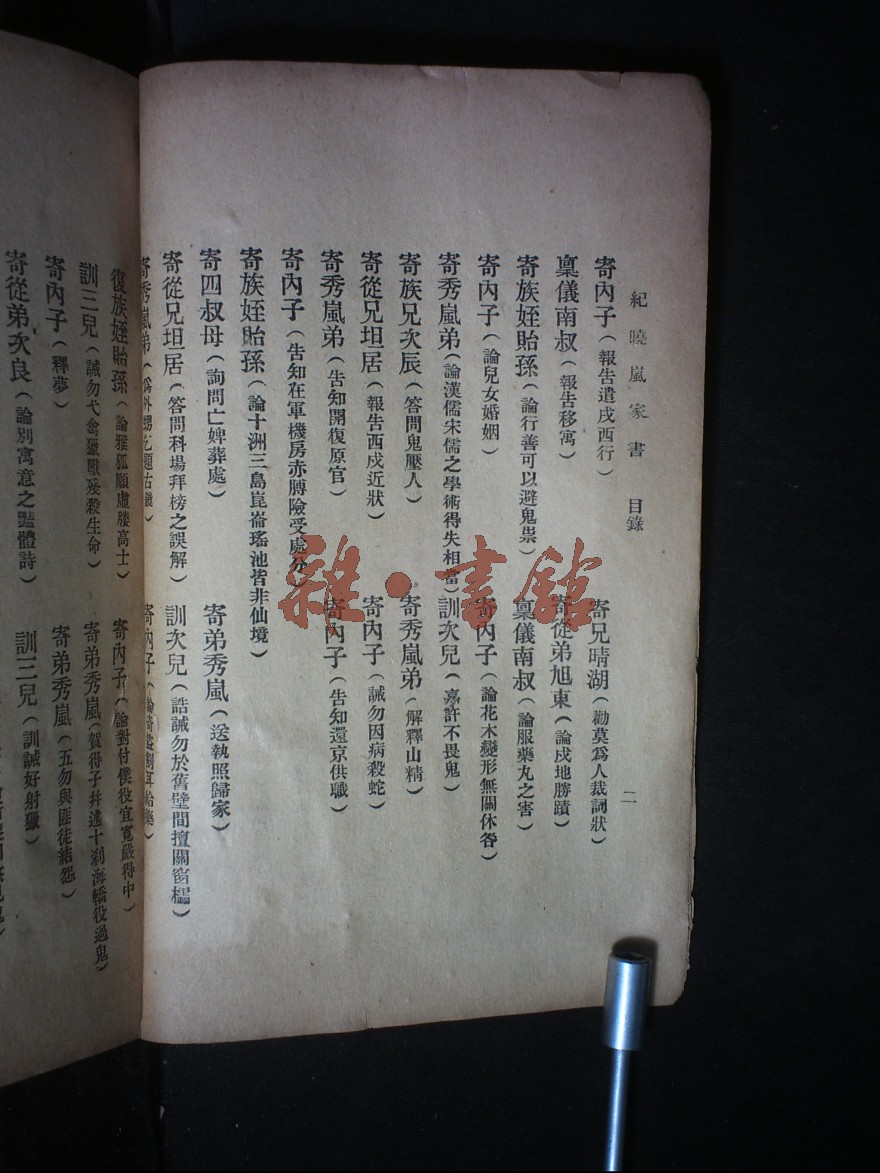 紀曉嵐家書 目錄 二
寄內子(報告遣戍西行) 寄兄晴湖(勸莫爲人裁詞狀)
稟儀南叔(報告移寓) 寄從弟旭東(論戍地勝蹟)
寄族姪貽孫(論行善可以避鬼祟) 稟儀南叔(論服藥丸之害)
寄內子(論兒女婚姻) 寄內子(論花木變形無關休咎)
寄秀嵐弟(論漢儒宋儒之學術得失相當) 訓次兒(嘉許不畏鬼)
寄族兄次辰(答問鬼壓人) 寄秀嵐弟(解釋山精)
寄從兄坦居(報告西戍近狀) 寄內子(誡勿因病殺蛇)
寄秀嵐弟(告知開復原官) 寄內子(告知還京供職)
寄內子(告知在軍機房赤膊險受處分)
寄族姪貽孫(論十洲三島崑崙瑤池皆非仙境)
寄四叔母(詢問亡婢葬處) 寄弟秀嵐(送執照歸家)
寄從兄坦居(答問科場拜榜之誤解) 訓次兒(誥誡勿於舊壁間擅關窗櫺)
寄秀嵐弟 寄內子
復族姪貽孫(論雅狐願虛腰高士) 寄內子(論對付僕役宜寬嚴得中)
訓三兒(誡勿弋禽獵獸殘殺生命) 寄弟秀嵐(賀得子幷述十刹海轎役過鬼)
寄內子(釋夢) 寄弟秀嵐(五勿與匪徒結怨)
寄從弟次良(論別寓意之豔體詩) 訓三兒(訓誡好射獵)
雜·書館